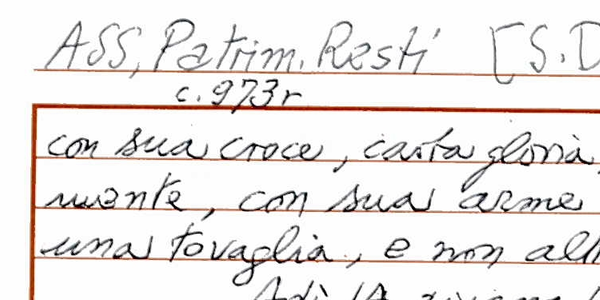 ASS, Patrim. Resti [S.D
c. 973r
con sua croce, carta gloria,
mente, con sua arme
una tovaglia, e non alt
Adì